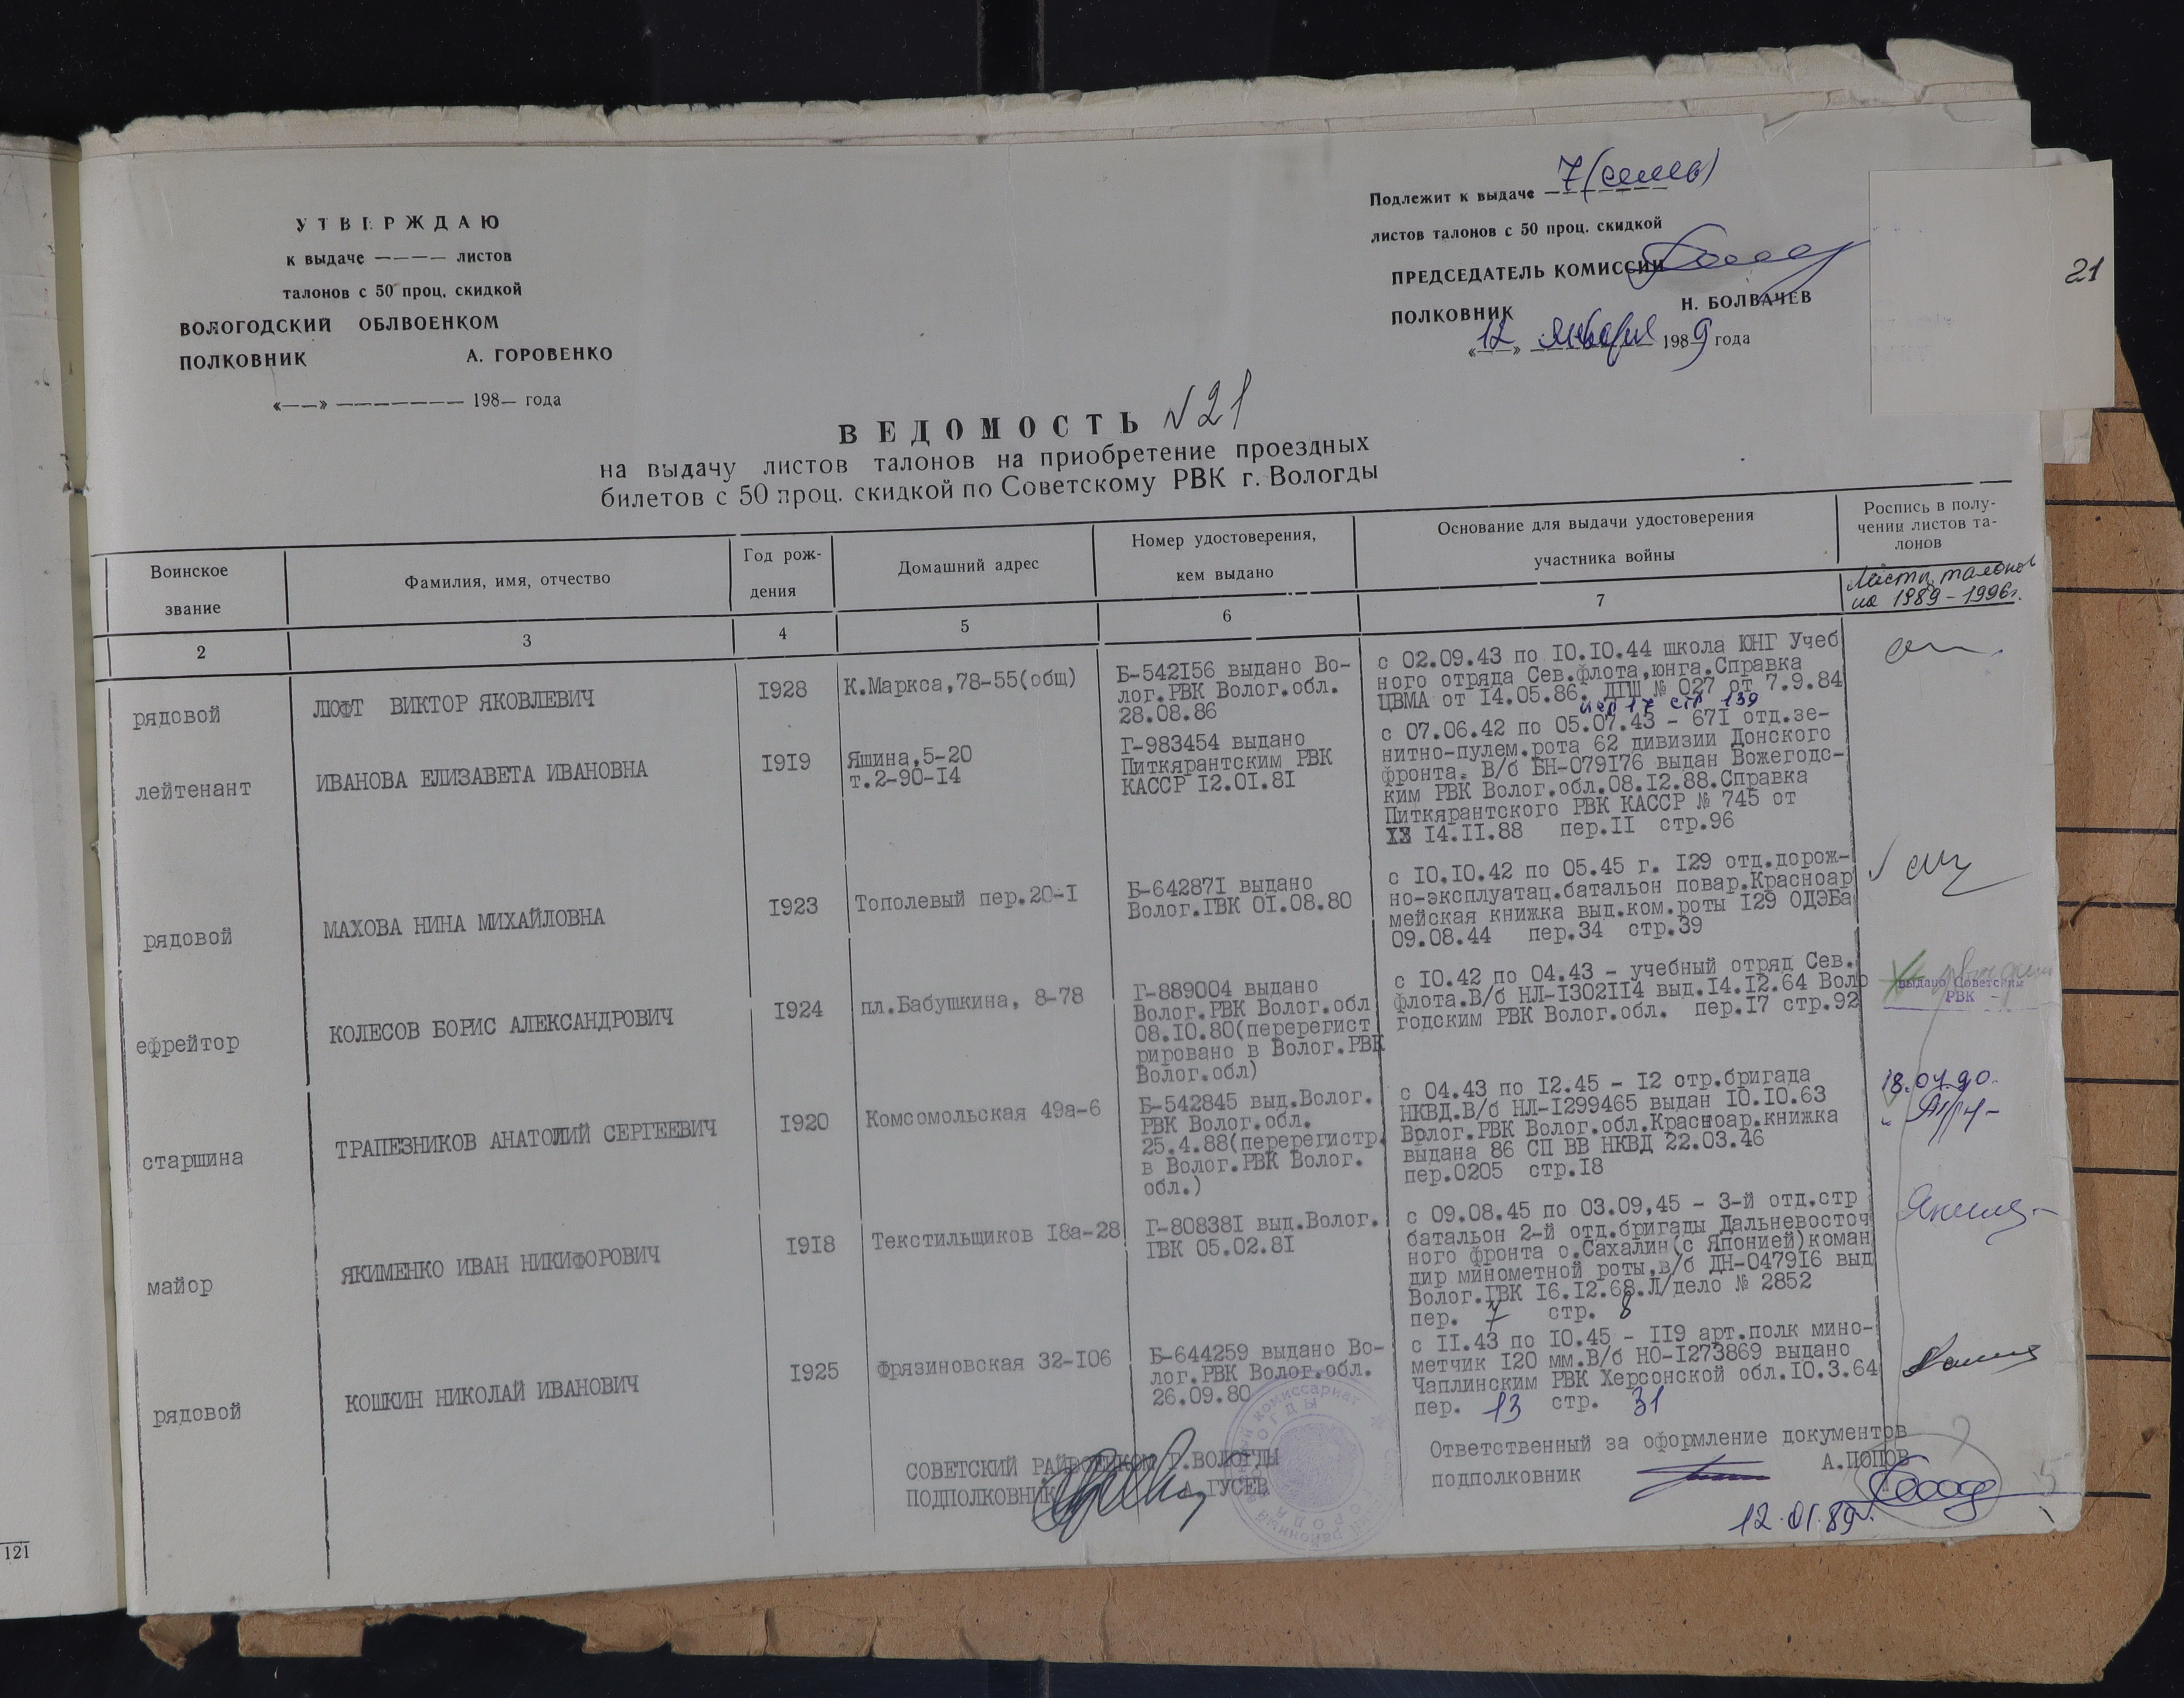 УТВЕРЖДАЮ
к выдаче ———— листов
талонов с 50 проц. скидкой
ВОЛОГОДСКИЙ ОБЛВОЕНКОМ
ПОЛКОВНИК А. ГОРОВЕНКО
«——» ——————— 198— года
Подлежит к выдаче 7 (семь)
листов талонов с 50 проц. скидкой
ПРЕДСЕДАТЕЛЬ КОМИССИИ
ПОЛКОВНИК Н. БОЛВАЧЕВ
«12» января 1989 года
21
ВЕДОМОСТЬ N 21
на выдачу листов талонов на приобретение проездных
билетов с 50 проц. скидкой по Советскому РВК г. Вологды
Воинское
звание
Фамилия, имя, отчество
Год рож-
дения
Домашний адрес
Номер удостоверения,
кем выдано
Основание для выдачи удостоверения
участника войны
Роспись в полу-
чении листов та-
лонов
Листы талонов
на 1989-1996г.
2 3 4 5 6 7
рядовой
ЛЮФТ ВИКТОР ЯКОВЛЕВИЧ
1928
К.Маркса,78-55(общ)
Б-542156 выдано Во-
лог.РВК Волог.обл.
28.08.86
с 02.09.43 по 10.10.44 школа ЮНГ Учеб
ного отряда Сев.флота,юнга.Справка
ЦВМА от 14.05.86. ДПШ № 027 от 7.9.84
пер 17 стр 139
лейтенант
ИВАНОВА ЕЛИЗАВЕТА ИВАНОВНА
1919
Яшина,5-20
т.2-90-14
Г-983454 выдано
Питкярантским РВК
КАССР 12.01.81
с 07.06.42 по 05.07.43 - 671 отд.зе-
нитно-пулем.рота 62 дивизии Донского
фронта. В/б БН-079176 выдан Вожегодс-
ким РВК Волог.обл.08.12.88.Справка
Питкярантского РВК КАССР № 745 от
14.11.88 пер.11 стр.96
рядовой
МАХОВА НИНА МИХАЙЛОВНА
1923
Тополевый пер.20-1
Б-642871 выдано
Волог.ГВК 01.08.80
с 10.10.42 по 05.45 г. 129 отд.дорож-
но-эксплуатац.батальон повар.Красноар
мейская книжка выд.ком.роты 129 ОДЭБа
09.08.44 пер.34 стр.39
ефрейтор
КОЛЕСОВ БОРИС АЛЕКСАНДРОВИЧ
1924
пл.Бабушкина, 8-78
Г-889004 выдано
Волог.РВК Волог.обл
08.10.80(перерегист
рировано в Волог.РВК
Волог.обл)
с 10.42 по 04.43 - учебный отряд Сев.
флота.В/б НЛ-1302114 выд.14.12.64 Воло
годским РВК Волог.обл. пер.17 стр.92
выдано Советским
РВК -
старшина
ТРАПЕЗНИКОВ АНАТОЛИЙ СЕРГЕЕВИЧ
1920
Комсомольская 49а-6
Б-542845 выд.Волог.
РВК Волог.обл.
25.4.88(перерегистр.
в Волог.РВК Волог.
обл.)
с 04.43 по 12.45 - 12 стр.бригада
НКВД.В/б НЛ-1299465 выдан 10.10.63
Волог.РВК Волог.обл.Красноар.книжка
выдана 86 СП ВВ НКВД 22.03.46
пер.0205 стр.18
18.04.90.
майор
ЯКИМЕНКО ИВАН НИКИФОРОВИЧ
1918
Текстильщиков 18а-28
Г-808381 выд.Волог.
ГВК 05.02.81
с 09.08.45 по 03.09,45 - 3-й отд.стр
батальон 2-й отд.бригады Дальневосточ
ного фронта о.Сахалин(с Японией)коман
дир минометной роты,в/б ДН-047916 выд
Волог.ГВК 16.12.68.Л/дело № 2852
пер. 7 стр. 8
рядовой
КОШКИН НИКОЛАЙ ИВАНОВИЧ
1925
Фрязиновская 32-106
Б-644259 выдано Во-
лог.РВК Волог.обл.
26.09.80
с 11.43 по 10.45 - 119 арт.полк мино-
метчик 120 мм.В/б НО-1273869 выдано
Чаплинским РВК Херсонской обл.10.3.64
пер. 13 стр. 31
СОВЕТСКИЙ РАЙВОЕНКОМ Г.ВОЛОГДЫ
ПОДПОЛКОВНИК А.ГУСЕВ
Ответственный за оформление документов
подполковник А.ПОПОВ
12.01.89г.
121